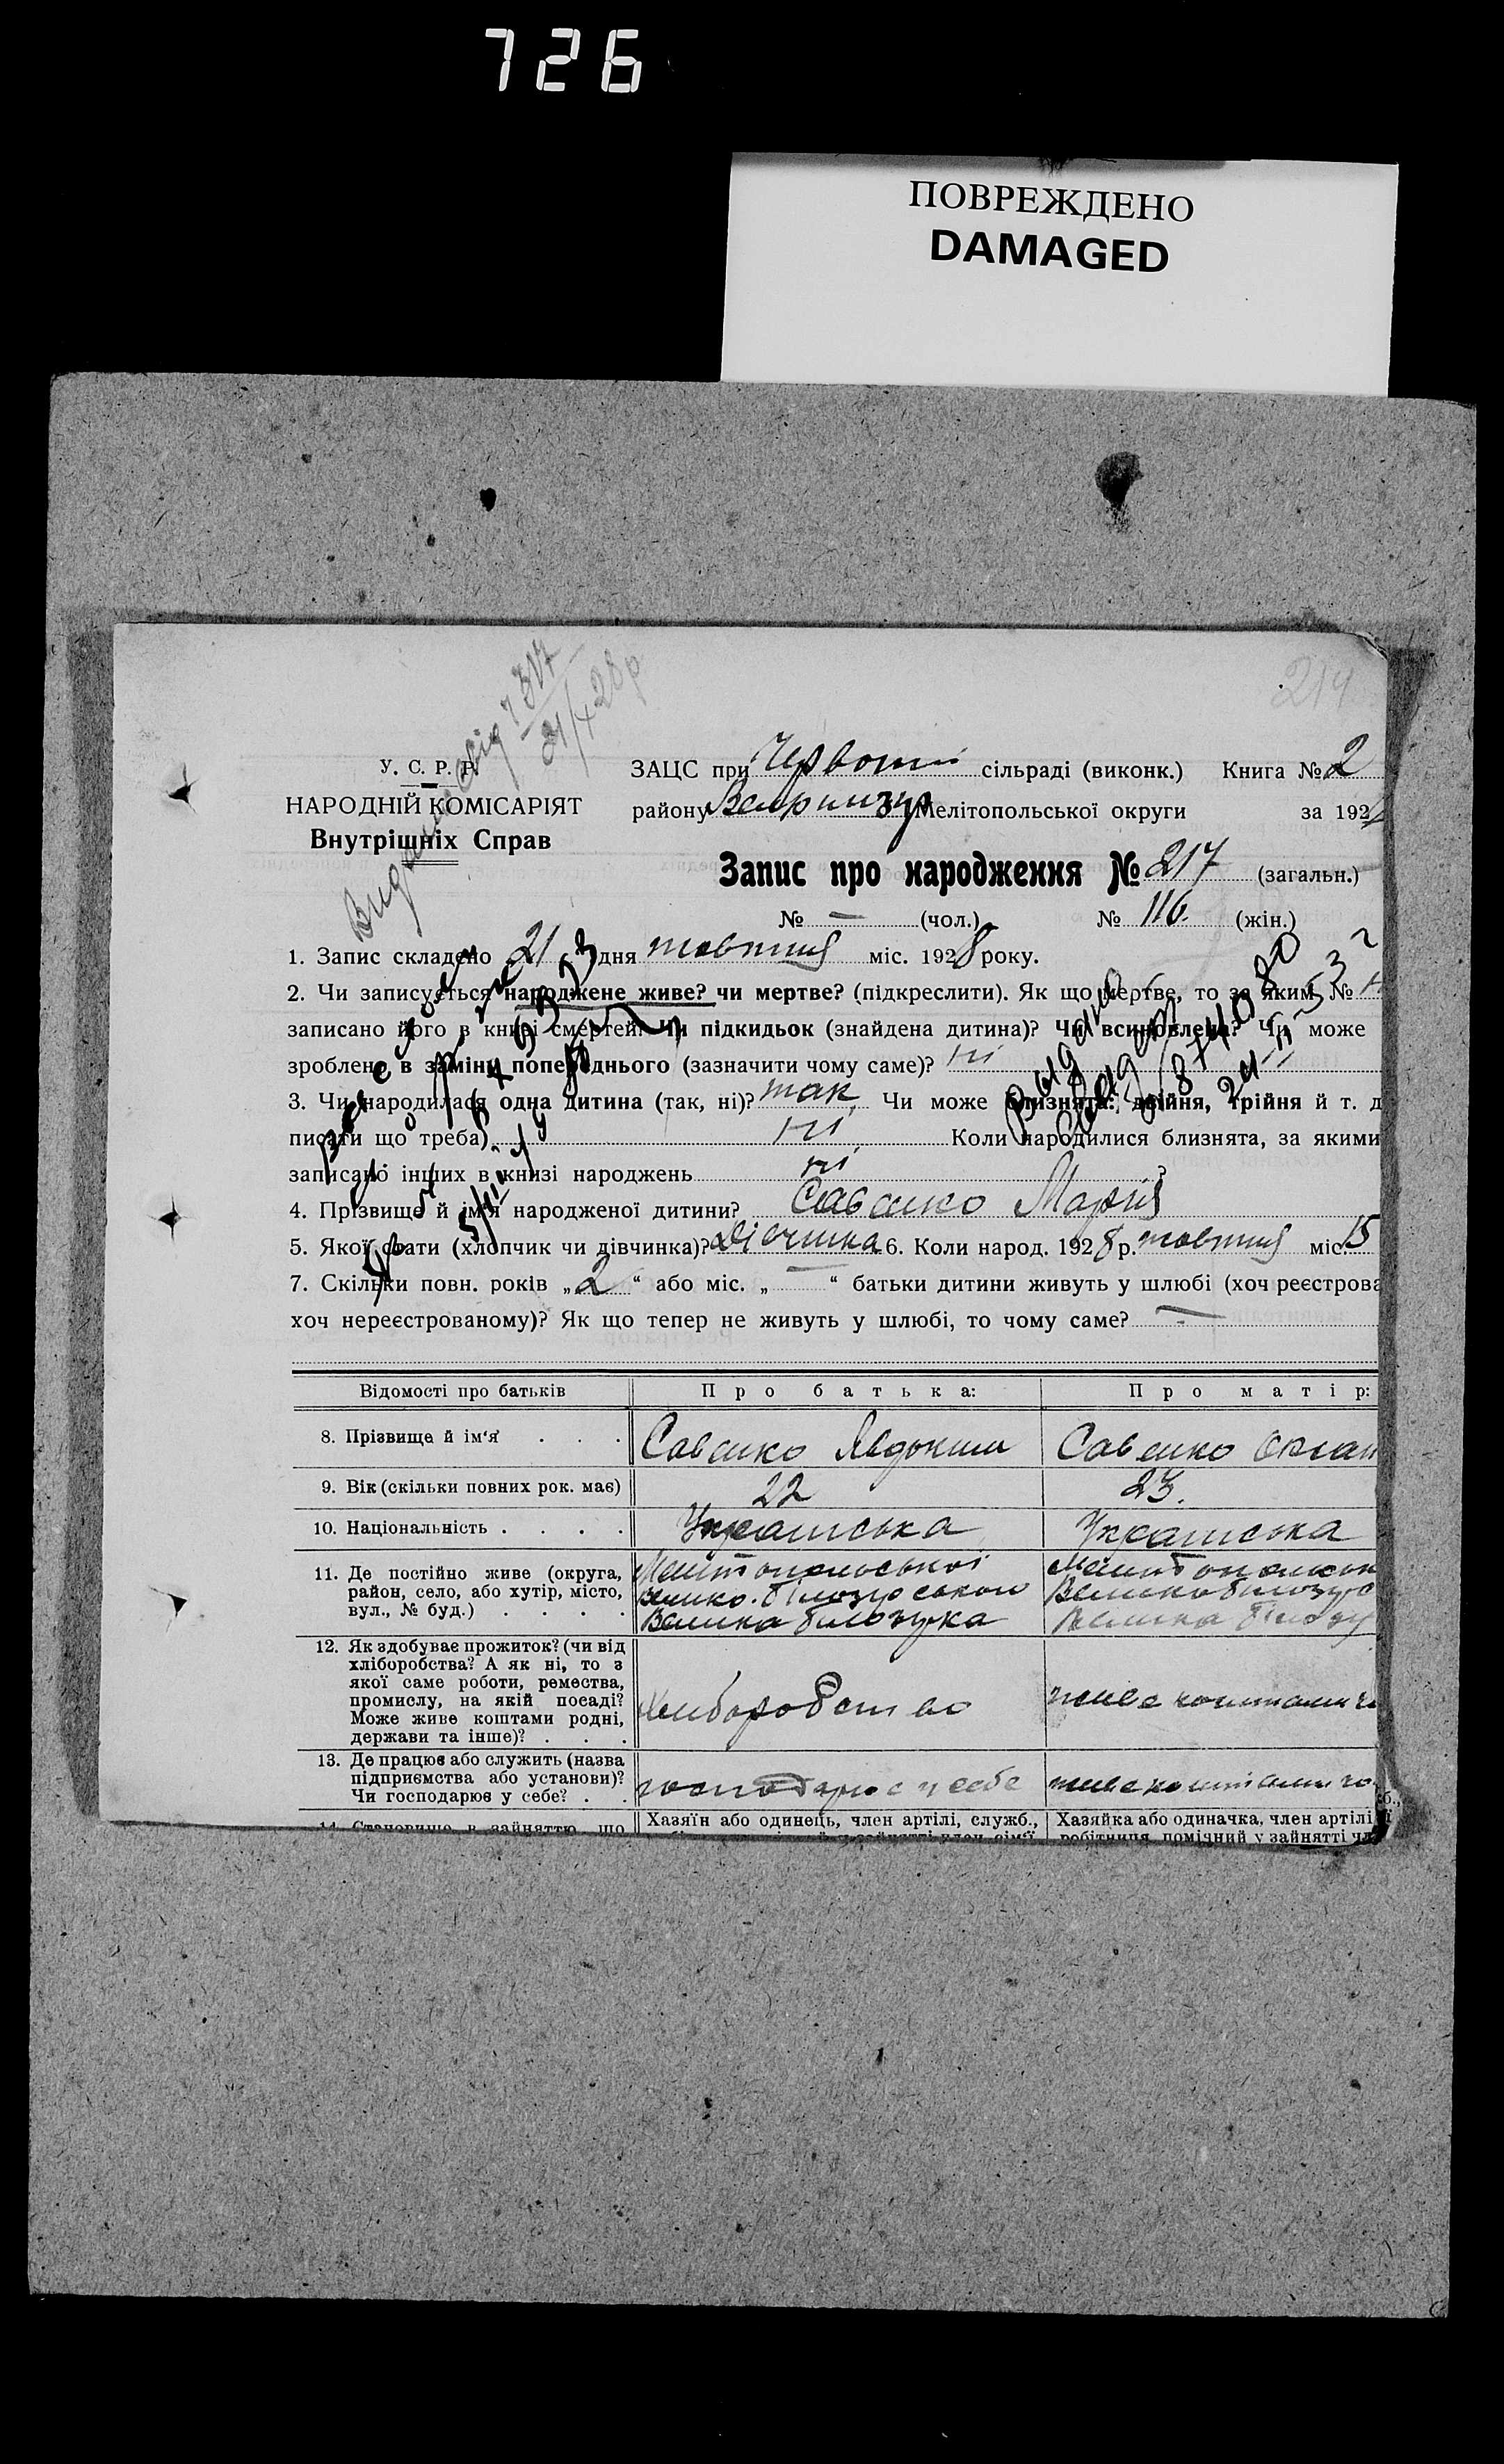 726
ПОВРЕЖДЕНО
DAMAGED
214
У. С. Р. Р.
НАРОДНІЙ КОМІСАРІЯТ
Внутрішніх Справ
ЗАЦС при сільраді (виконк.) Книга № 2
району Мелітопольської округи за 192
Запис про народження № 217 (загальн.)
№ — (чол.) № 116. (жін.)
1. Запис складено 21 дня жовтня міс. 1928 року.
2. Чи записується народжене живе? чи мертве? (підкреслити). Як що мертве, то за яким №
записано його в книзі смертей. Чи підкидьок (знайдена дитина)? Чи всиновлена? Чи може
зроблено в заміну попереднього (зазначити чому саме)? ні
3. Чи народилася одна дитина (так, ні)? так, Чи може близнята: двійня, трійня й т. д
писати що треба) ні Коли народилися близнята, за якими
записано інших в книзі народжень ні ?
4. Прізвище й ім'я народженої дитини? Савенко Марія
5. Якої стати (хлопчик чи дівчинка)? Дівчинка 6. Коли народ. 1928 р. жовтня міс. 15
7. Скільки повн. років „ 2 “ або міс. „ — “ батьки дитини живуть у шлюбі (хоч реєстрова
хоч нереєстрованому)? Як що тепер не живуть у шлюбі, то чому саме? —
Відомості про батьків Про батька: Про матір:
8. Прізвище й ім'я . . . Савенко Явдоким Савенко Оксан
9. Вік (скільки повних рок. має) 22 23.
10. Національність . . . . Українська Українська
11. Де постійно живе (округа, Мелітопольської
район, село, або хутір, місто, Велико-білозірської Великобілозір
вул., № буд.) . . . . Велика білозірка Велика білозі
12. Як здобуває прожиток? (чи від
хліборобства? А як ні, то з
якої саме роботи, ремества,
промислу, на якій посаді? Хліборобство живе коштами
Може живе коштами родні,
держави та інше)? . . .
13. Де працює або служить (назва
підприємства або установи)? господарює у себе живе коштами
Чи господарює у себе? . .
14. Становище в зайняттю, що Хазяїн або одинець, член артілі, служб., Хазяйка або одиначка, член артілі
робітниця, помічний у зайнятті чл